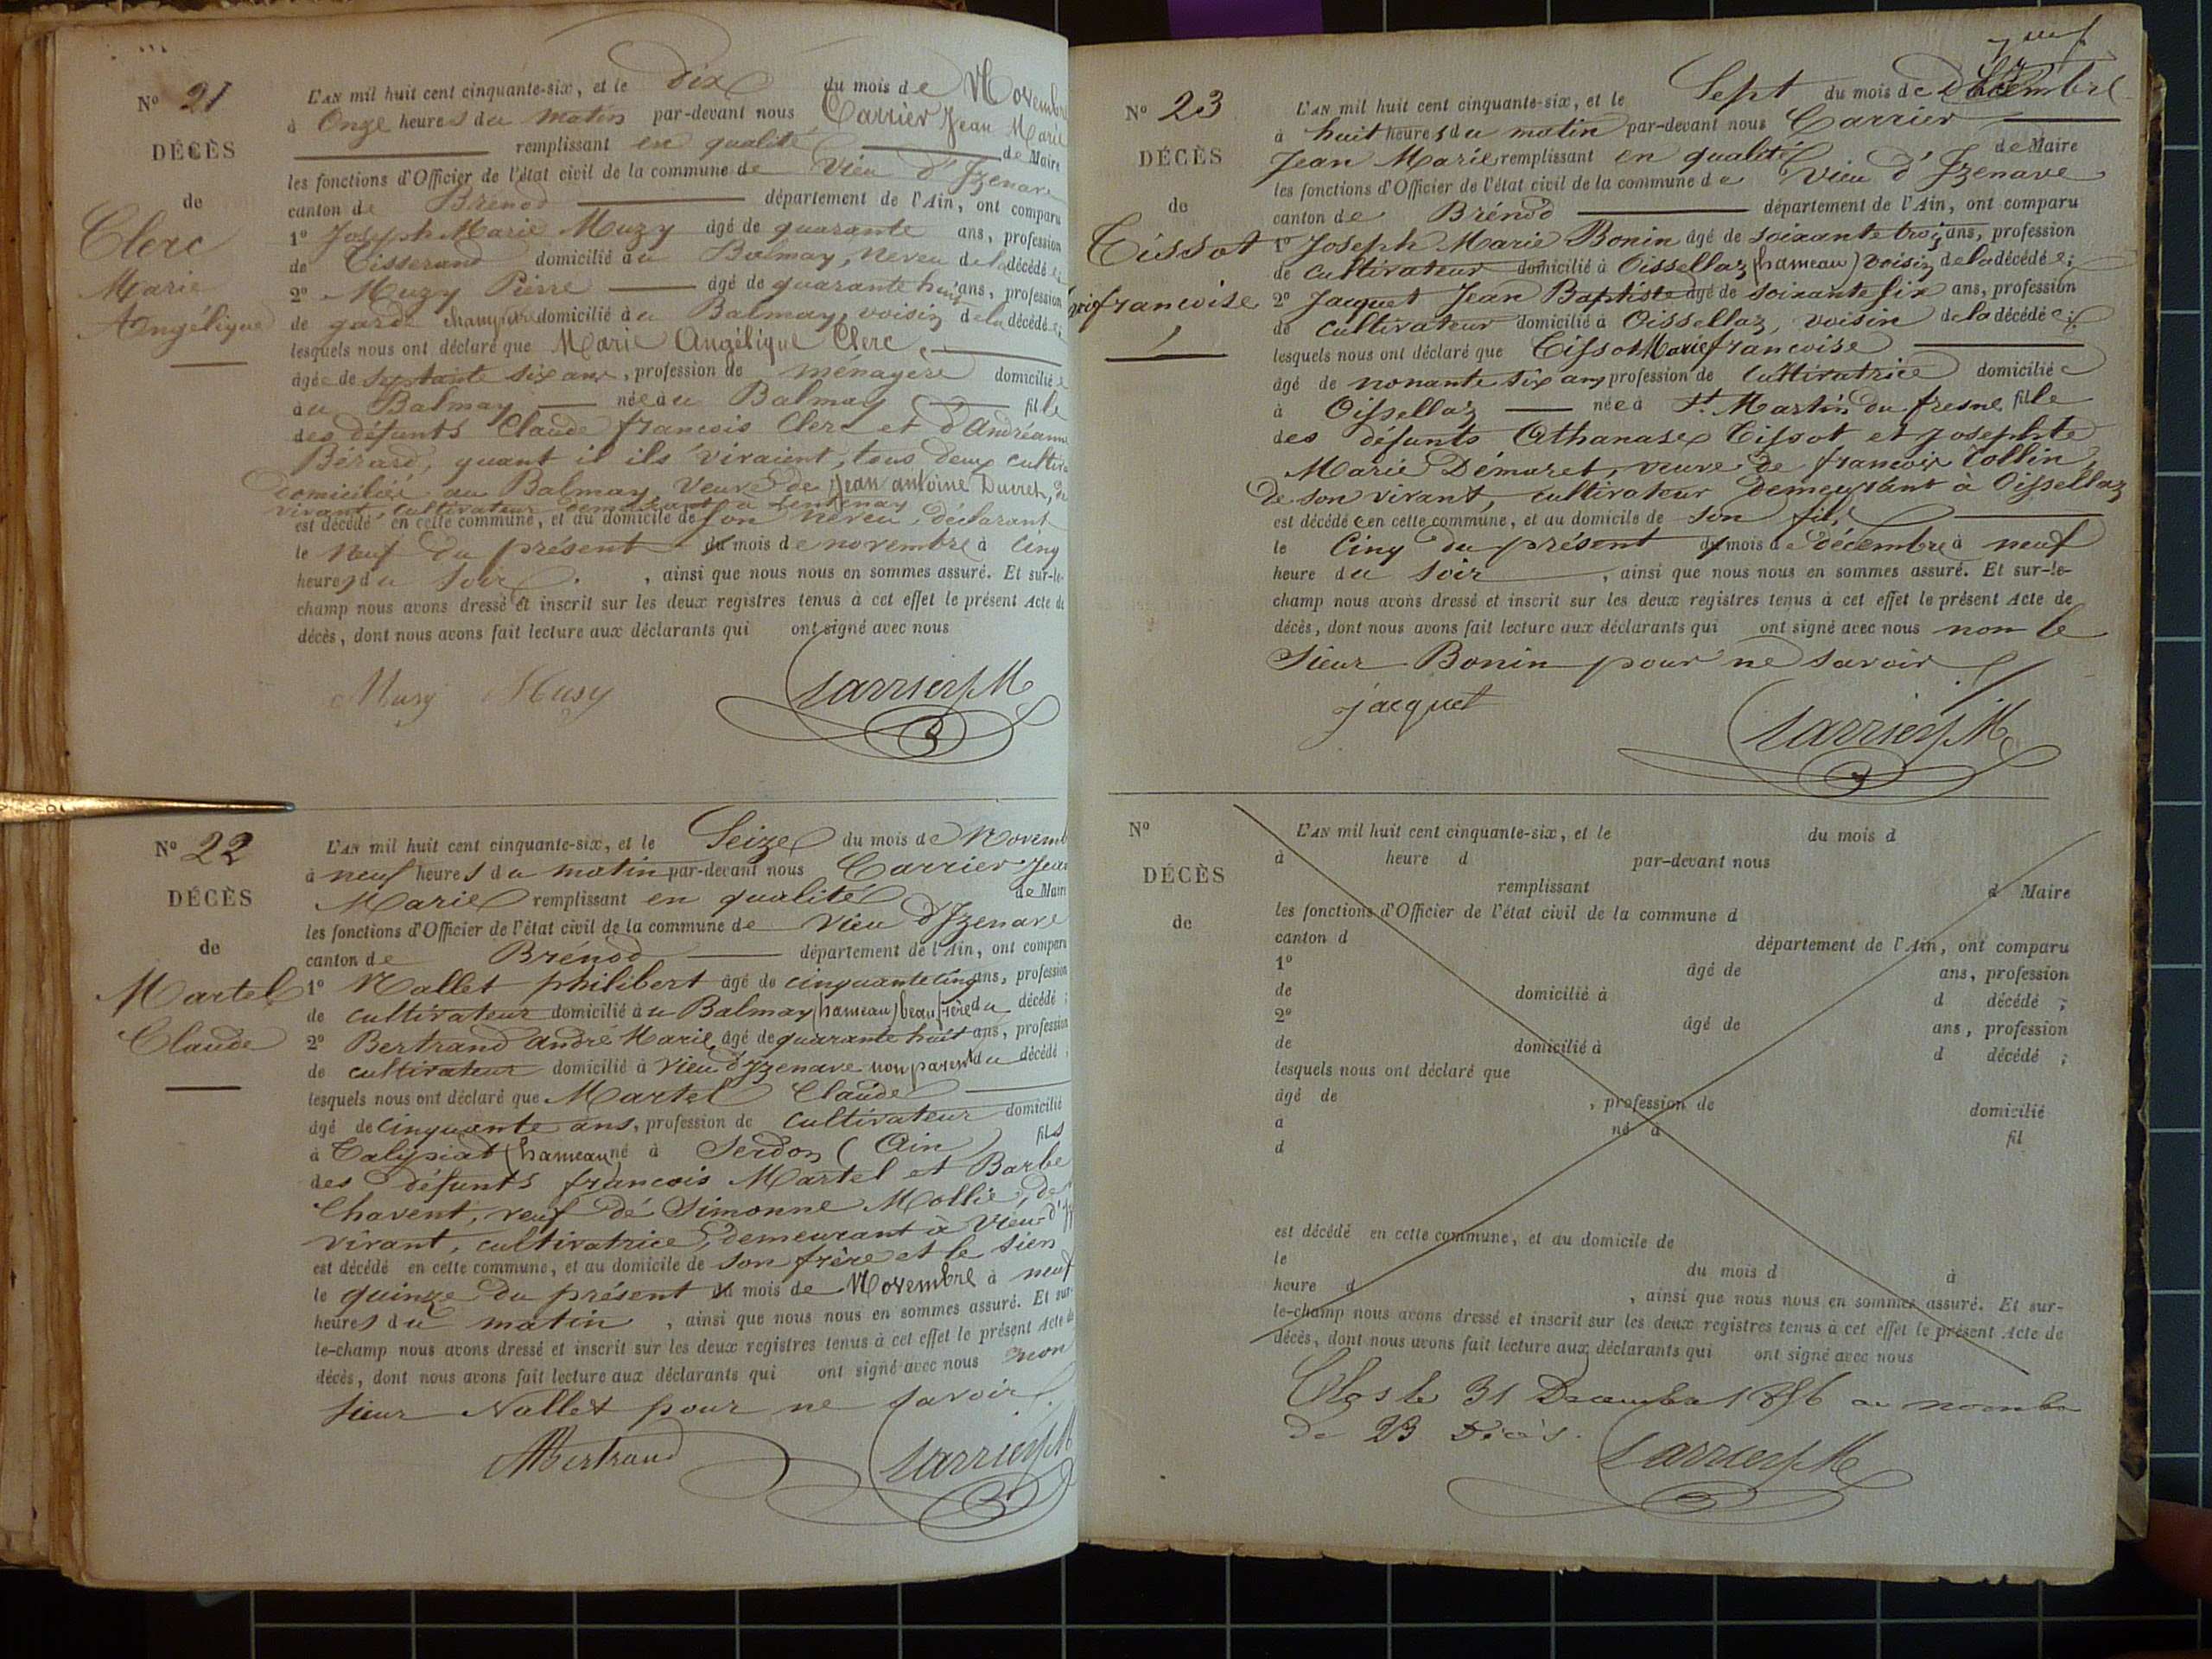 N° 21
DÉCÈS
de
Clerc
Marie
Angélique
L'AN mil huit cent cinquante-six, et le dix du mois de Novembre
à Onze heures du matin par-devant nous Carrier Jean Marie
remplissant en qualité de Maire
les fonctions d'Officier de l'état civil de la commune de Vieu d'Izenave
canton de Brénod département de l'Ain, ont comparu
1° Joseph Marie Muzy âgé de quarante ans, profession
de Tisserand domicilié au Balmay, neveu de la décédée;
2° Muzy Pierre âgé de quarante huit ans, profession
de garde champêtre domicilié au Balmay, voisin de la décédée;
lesquels nous ont déclaré que Marie Angélique Clerc,
âgée de septante six ans, profession de ménagère domiciliée
au Balmay née au Balmay fille
des défunts Claude françois Clerc et d'Andréanne
Bérard, quant il ils vivaient, tous deux cultiv
domiciliés au Balmay, Veuve de Jean antoine Ducret, de
vivant, cultivateur demeurant à
est décédé en cette commune, et au domicile de son neveu, déclarant
le Neuf du présent du mois de novembre à Cinq
heures du soir , ainsi que nous nous en sommes assuré. Et sur-le-
champ nous avons dressé et inscrit sur les deux registres tenus à cet effet le présent Acte de
décès, dont nous avons fait lecture aux déclarants qui ont signé avec nous
Muzy Musy Carrier J M
N° 22
DÉCÈS
de
Martel
Claude
L'AN mil huit cent cinquante-six, et le Seize du mois de Novemb
à neuf heures du matin par-devant nous Carrier Jean
Marie remplissant en qualité de Maire
les fonctions d'Officier de l'état civil de la commune de Vieu d'Izenave
canton de Brénod département de l'Ain, ont comparu
1° Nallet philibert âgé de cinquante cinq ans, profession
de cultivateur domicilié au Balmay (hameau) beau frère du décédé;
2° Bertrand André Marie âgé de quarante huit ans, profession
de cultivateur domicilié à Vieu d'Izenave non parent du décédé;
lesquels nous ont déclaré que Martel Claude
âgé de cinquante ans, profession de cultivateur domicilié
à Talipiat (hameau) né à Serdon (Ain) fils
des défunts françois Martel et Barbe
Chavent, veuf de Simonne Mollie, de
vivant, cultivatrice, demeurant à Vieu d'Iz
est décédé en cette commune, et au domicile de son frère et le sien
le quinze du présent du mois de Novembre à neuf
heures du matin , ainsi que nous nous en sommes assuré. Et sur-
le-champ nous avons dressé et inscrit sur les deux registres tenus à cet effet le présent Acte de
décès, dont nous avons fait lecture aux déclarants qui ont signé avec nous non
sieur Nallet pour ne savoir
ABertrand Carrier J M
neuf
N° 23
DÉCÈS
de
Tissot
françoise
L'AN mil huit cent cinquante-six, et le Sept du mois de Décembre
à huit heures du matin par-devant nous Carrier
Jean Marie remplissant en qualité de Maire
les fonctions d'Officier de l'état civil de la commune de Vieu d'Izenave
canton de Brénod département de l'Ain, ont comparu
1° Joseph Marie Bonin âgé de soixante trois ans, profession
de cultivateur domicilié à Oissellaz (hameau) voisin de la décédée;
2° Jacquet Jean Baptiste âgé de soixante six ans, profession
de cultivateur domicilié à Oissellaz, voisin de la décédée;
lesquels nous ont déclaré que Tissot Marie françoise
âgé de nonante six ans profession de Cultivatrice domiciliée
à Oissellaz née à St Martin du fresne fille
des défunts Athanase Tissot et Josephte
Marie Démaret, veuve de françois Collin,
de son vivant, cultivateur demeurant à Oissellaz
est décédée en cette commune, et au domicile de son fils
le Cinq du présent du mois de décembre à neuf
heure du soir , ainsi que nous nous en sommes assuré. Et sur-le-
champ nous avons dressé et inscrit sur les deux registres tenus à cet effet le présent Acte de
décès, dont nous avons fait lecture aux déclarants qui ont signé avec nous non le
sieur Bonin pour ne savoir
jacquet
Carrier J M
N°
DÉCÈS
de
L'AN mil huit cent cinquante-six, et le du mois d
à heure d par-devant nous
remplissant d Maire
les fonctions d'Officier de l'état civil de la commune d
canton d département de l'Ain, ont comparu
1° âgé de ans, profession
de domicilié à d décédé ;
2° âgé de ans, profession
de domicilié à d décédé ;
lesquels nous ont déclaré que
âgé de , profession de domicilié
à né à fil
d
est décédé en cette commune, et au domicile de
le du mois d à
heure d , ainsi que nous nous en sommes assuré. Et sur-
le-champ nous avons dressé et inscrit sur les deux registres tenus à cet effet le présent Acte de
décès, dont nous avons fait lecture aux déclarants qui ont signé avec nous
Clos le 31 Décembre 1856 au nombre
de 23 Décès.
Carrier J M